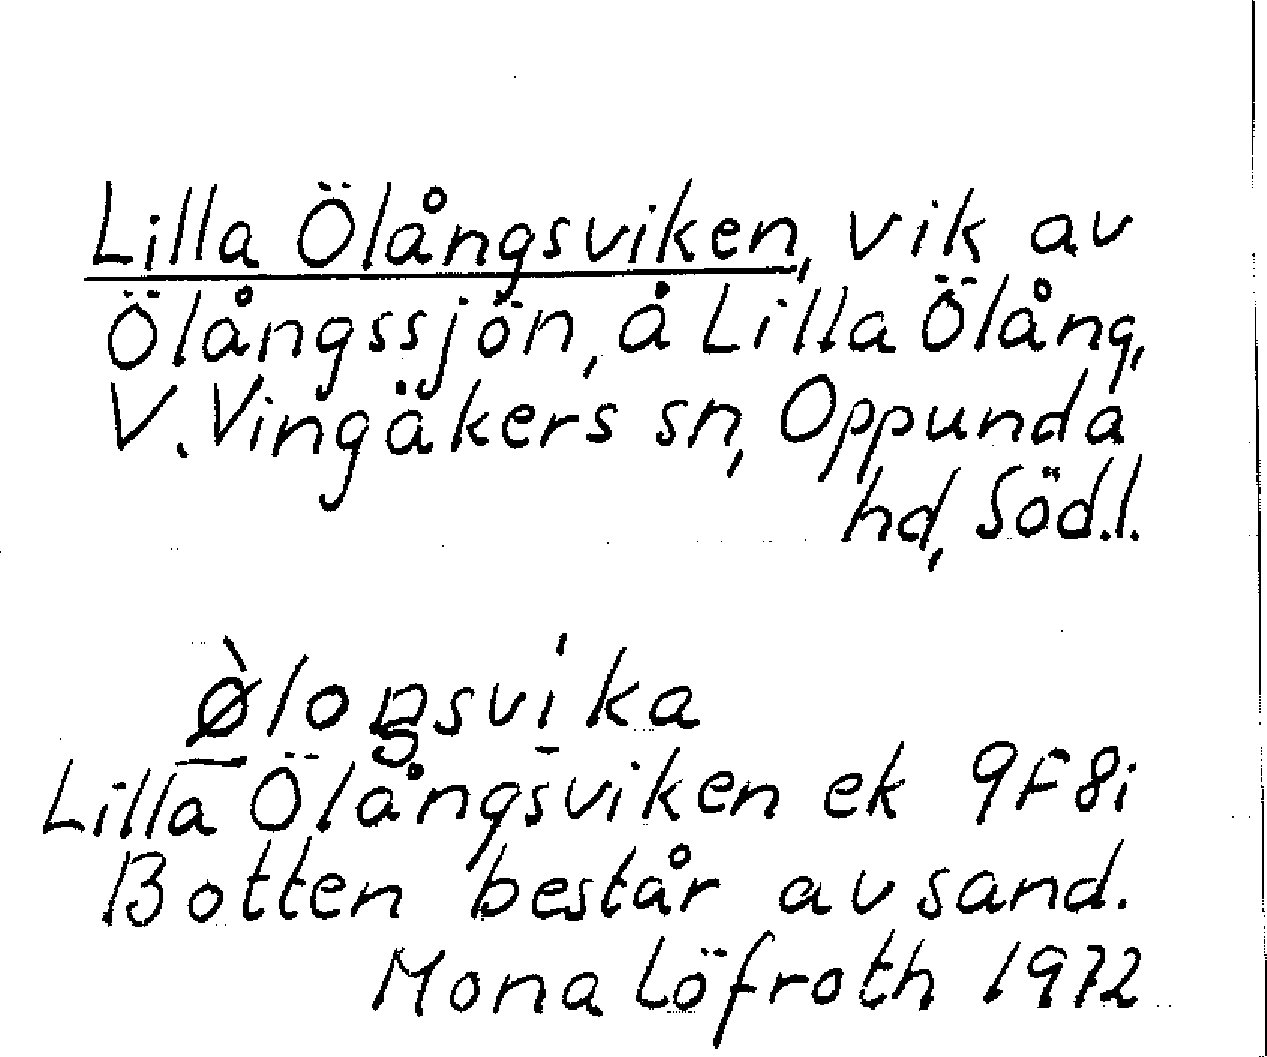 Lilla Ölångsviken, vik av
Ölångssjön, å Lilla Ölång,
V. Vingåkers sn, Oppunda
hd, Söd.l.
ø̠̀loŋsvi̠ka
Lilla Ölångsviken ek 9F8i
Botten består av sand.
Mona Löfroth 1972